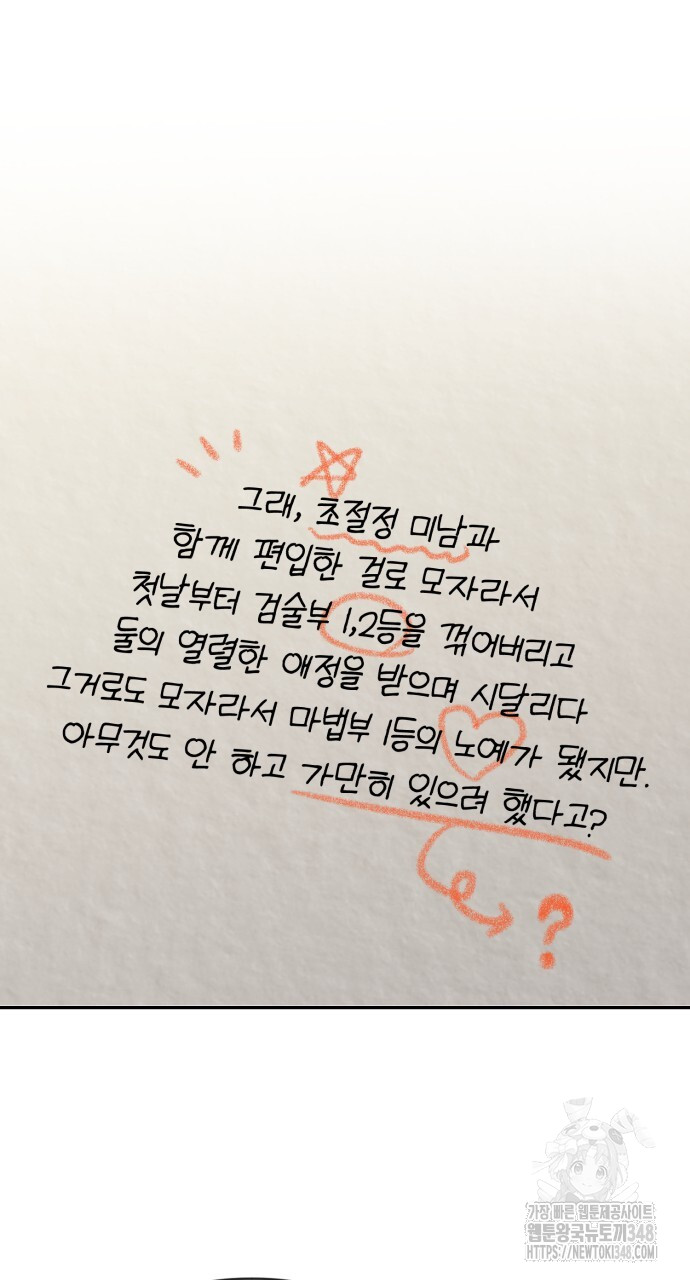 그래, 초절정 미남과
함께 편입한 걸로 모자라서
첫날부터 검술부 1,2등을 꺾어버리고
둘의 열렬한 애정을 받으며 시달리다
그거로도 모자라서 마법부 1등의 노예가 됐지만.
아무것도 안 하고 가만히 있으려 했다고?
?
가장 빠른 웹툰제공사이트
웹툰왕국뉴토끼348
HTTPS://NEWTOKI348.COM